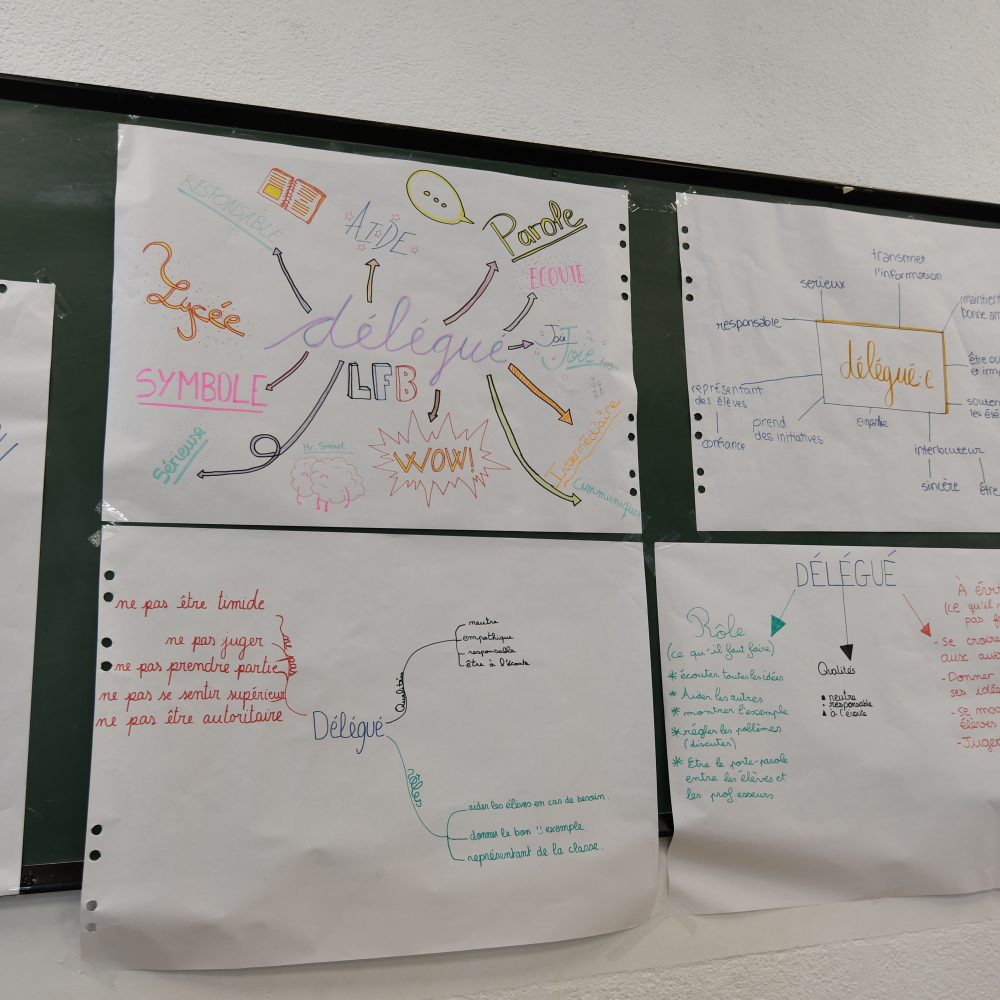 RESPONSABLE
AIDE
Parole
ÉCOUTE
Lycée
délégué
Joie
Joie
SYMBOLE
LFB
Sérieuse
Mr. Smart
WOW!
Intermédiaire
Communiquer
transmet
l'information
serieux
responsable
maintien
délégué·e
représentant
des élèves
confiance
prend
des initiatives
interlocuteur
sincère
être
ne pas être timide
ne pas juger
ne pas prendre partie
ne pas se sentir supérieur
ne pas être autoritaire
ne pas
Délégué
Qualités
neutre
empathique
responsable
être à l'écoute
rôles
aider les élèves en cas de besoin.
donner le bon !! exemple.
représentant de la classe.
DÉLÉGUÉ
Rôle
(ce qu'il faut faire)
* écouter toutes les idées
* Aider les autres
* montrer l'exemple
* régler les poblèmes
(discuter)
* Etre le porte-parole
entre les élèves et
les professeurs
Qualités
neutre
responsable
à l'écoute
À
(ce qu'il
pas
- se croire
aux
- Donner
ses idées
- se
élèves
- Juger